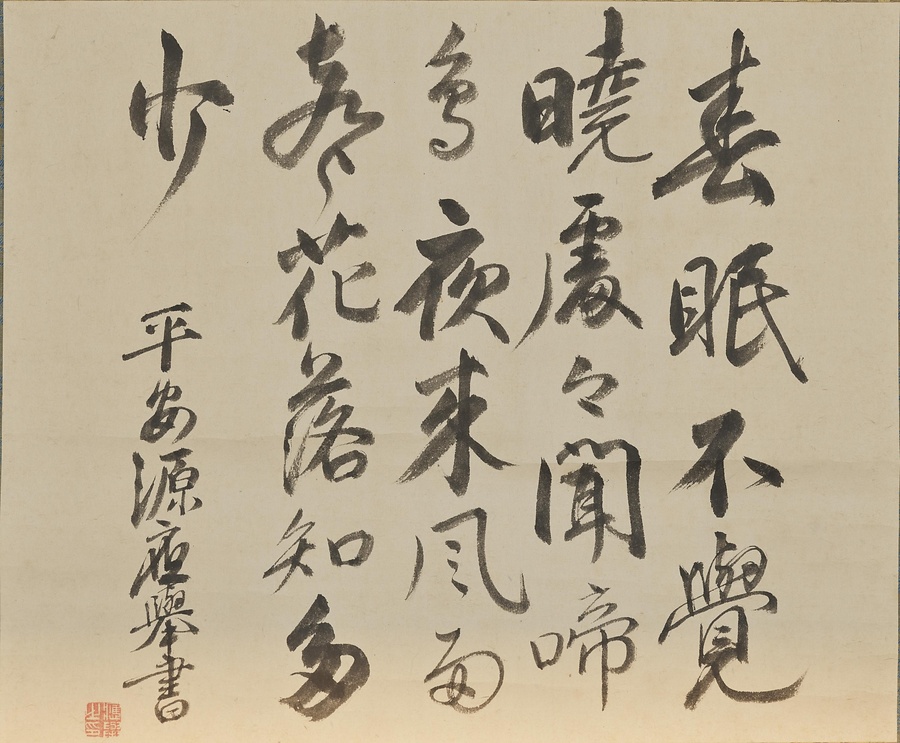 春眠不覺
曉處々聞啼
鳥夜来風雨
聲花落知多
少
平安源應舉書